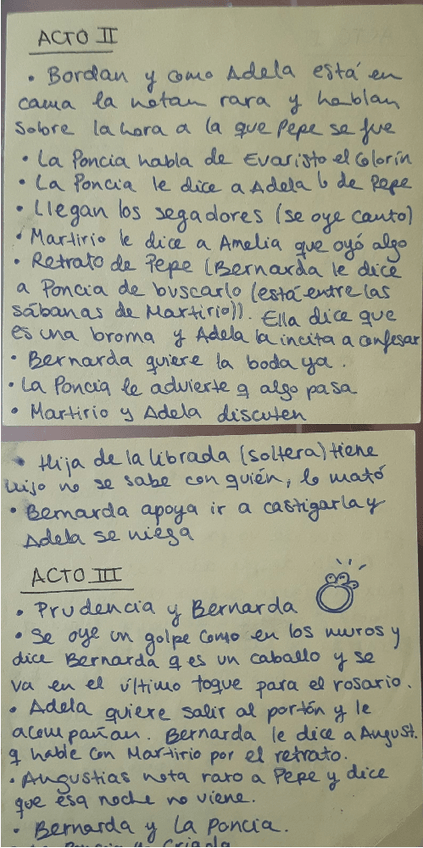 ACTO II
• Bordan y como Adela está en
cama la notan rara y hablan
sobre la hora a la que Pepe se fue
• La Poncia habla de Evaristo el Colorín
• La Poncia le dice a Adela lo de Pepe
• Llegan los segadores (se oye canto)
• Martirio le dice a Amelia que oyó algo
• Retrato de Pepe (Bernarda le dice
a Poncia de buscarlo (está entre las
sábanas de Martirio)). Ella dice que
es una broma y Adela la incita a confesar
• Bernarda quiere la boda ya.
• La Poncia le advierte q algo pasa
• Martirio y Adela discuten
• Hija de la librada (soltera) tiene
hijo no se sabe con quién, lo mató
• Bernarda apoya ir a castigarla y
Adela se niega
ACTO III
• Prudencia y Bernarda
• Se oye un golpe como en los muros y
dice Bernarda q es un caballo y se
va en el último toque para el rosario.
• Adela quiere salir al portón y le
acompañan. Bernarda le dice a August.
q hable con Martirio por el retrato.
• Angustias nota raro a Pepe y dice
que esa noche no viene.
• Bernarda y La Poncia.